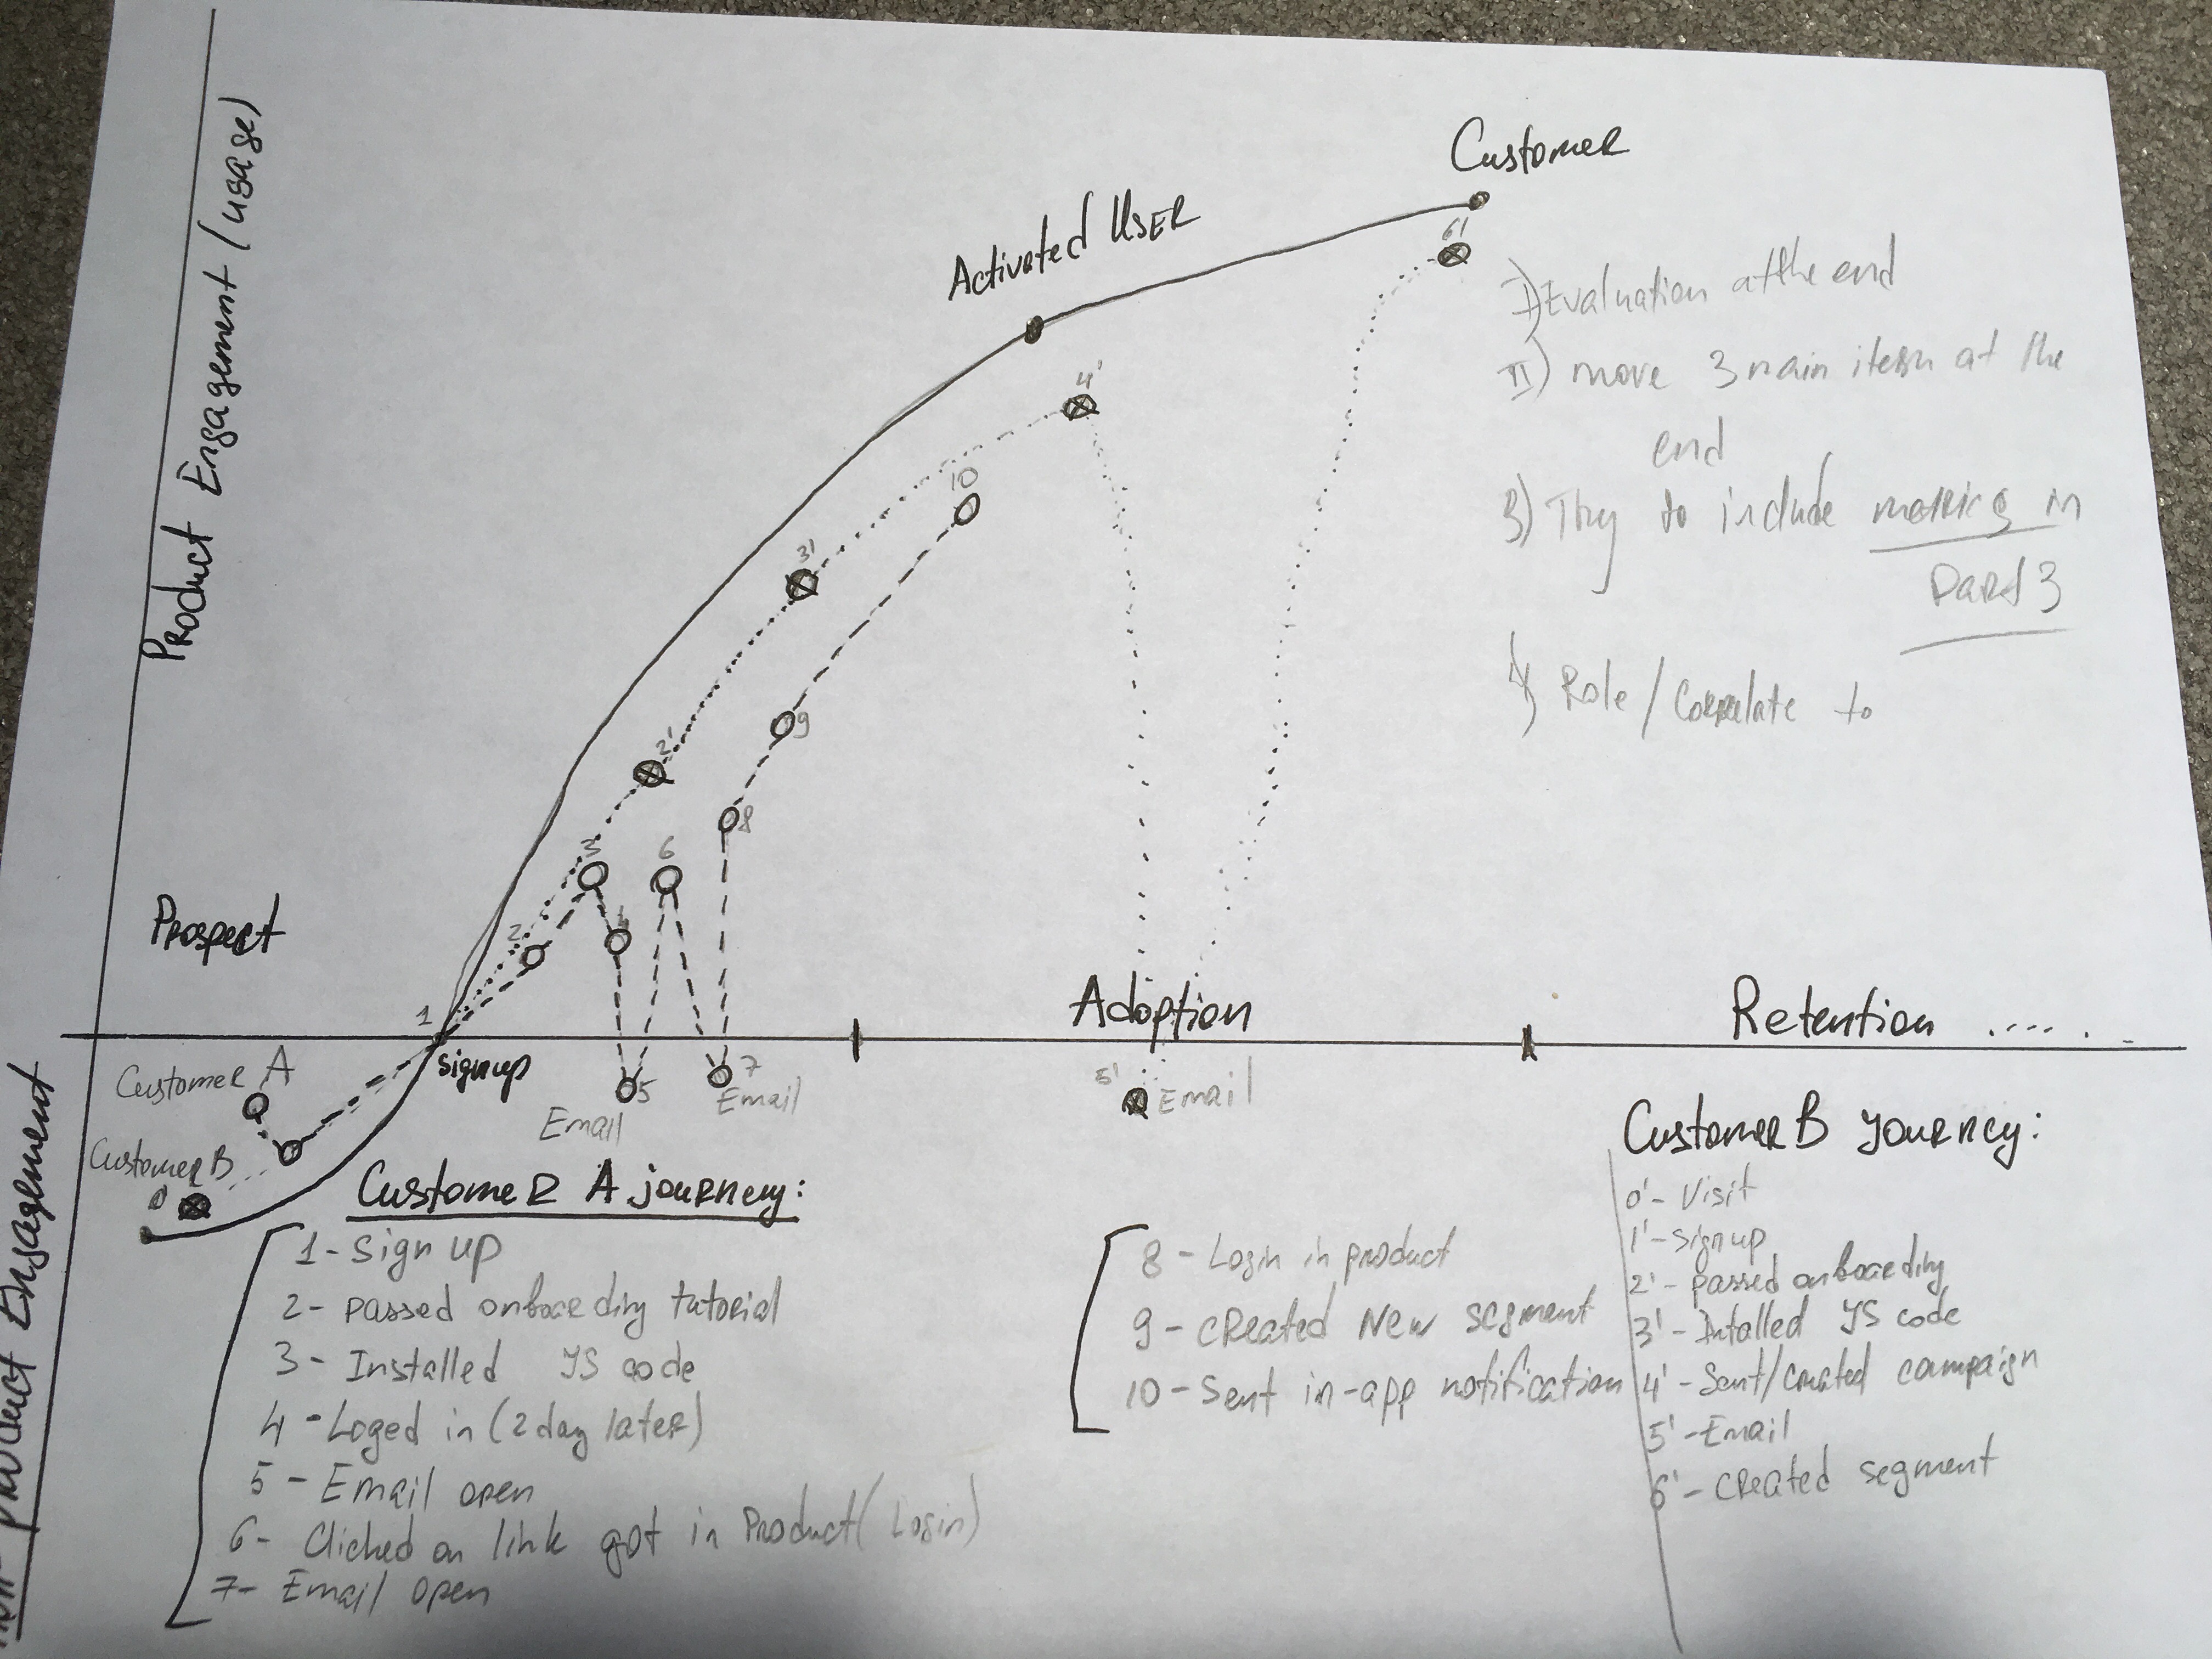 Product Engagement (usage)
Customer
Activated User
6'
4'
10
3'
9
2'
8
3
6
2
1
Prospect
signup
Adoption
Retention .....
I) Evaluation at the end
II) move 3 main items at the
end
3) Try to include in
Part 3
4) Role / Correlate to
Customer A
Customer B
0'
5
Email
7
Email
5'
Email
non-product Engagement
Customer A journey:
1 - Sign up
2 - passed onboarding tutorial
3 - Installed JS code
4 - Loged in (2 day later)
5 - Email open
6 - Clicked on link got in Product (Login)
7 - Email open
8 - Login in product
9 - created New segment
10 - Sent in-app notification
Customer B journey:
0' - Visit
1' - Signup
2' - passed onboarding
3' - Intalled JS code
4' - Sent/created campaign
5' - Email
6' - created segment